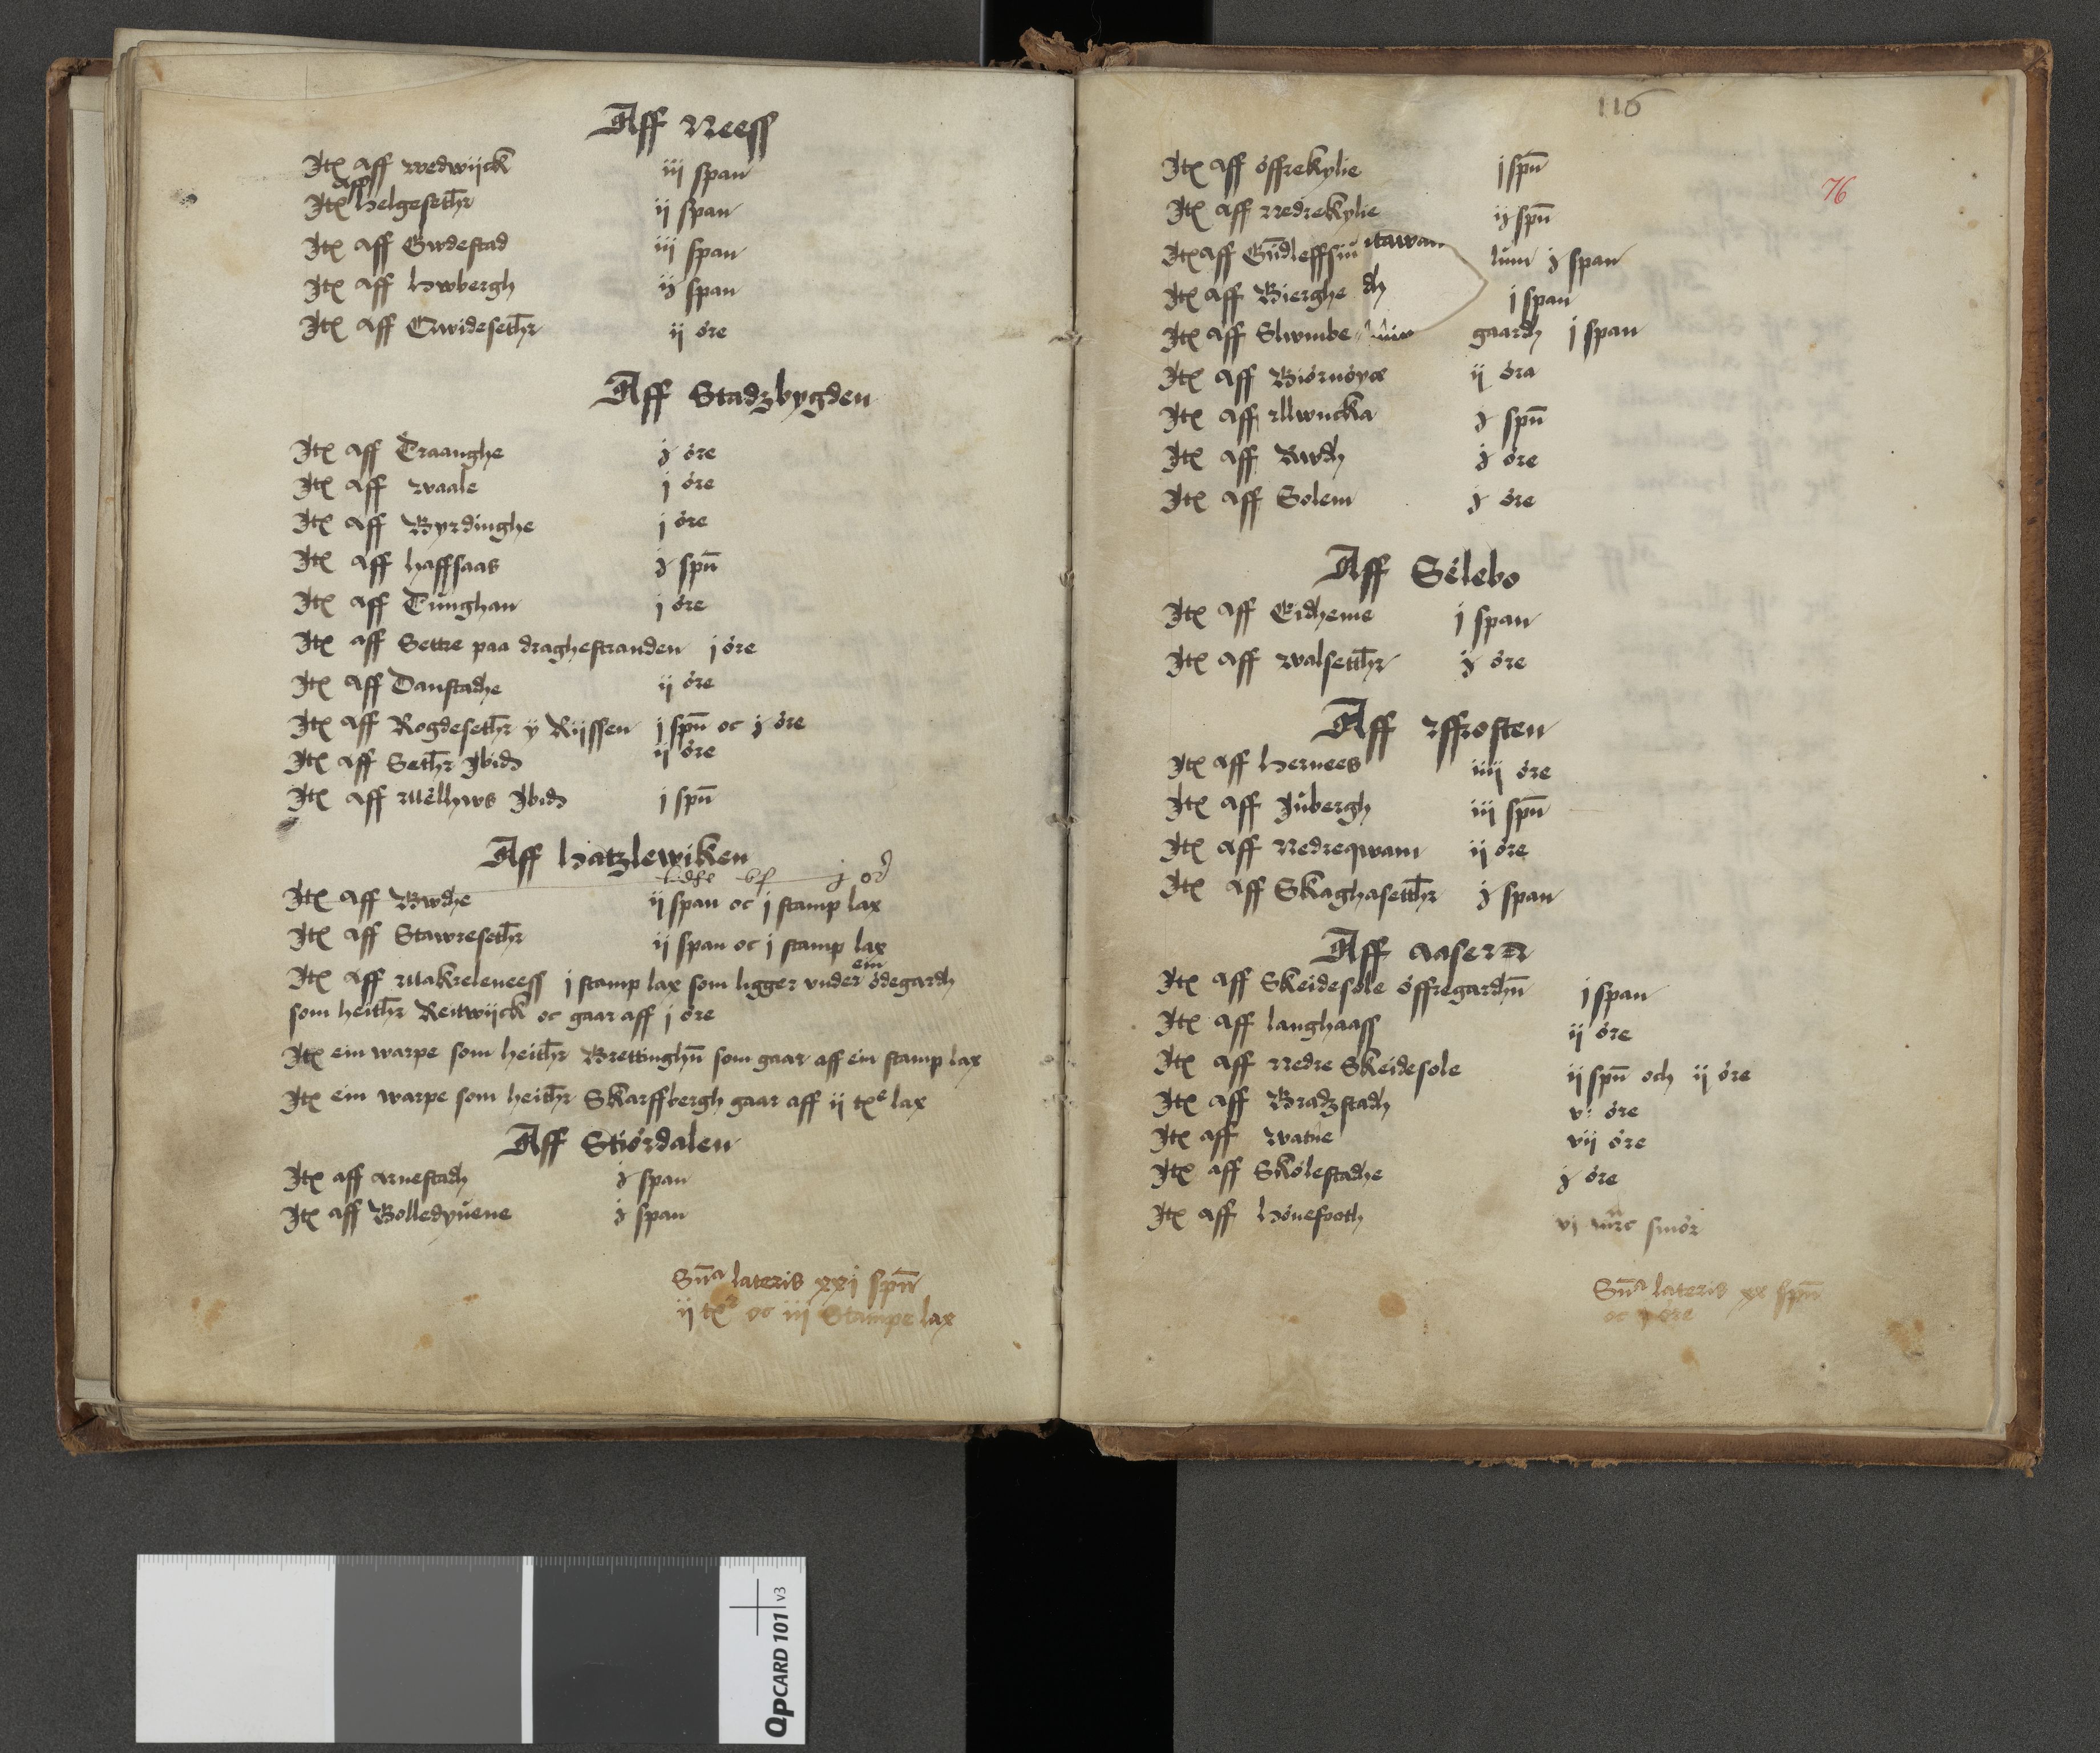 Aff Neess
Itē Aff wedwijck iij span
Itē aff helgesethr̄ ij span
Itē Aff Gwdestad iij span
Itē Aff hwbergh ij span
Itē Aff Crwidesethr̄ ij öre
Aff Stadzbygden
Itē Aff Traanghe j öre
Itē Aff waale j öre
Itē Aff Byrdinghe j öre
Itē Aff haffsaas j spn̄
Itē Aff Tünghan j öre
Itē aff Settre paa draghestranden j öre
Itē Aff Danstadhe ij öre
Itē Aff Rogdesethr̄ y Rijssen j spn̄ oc j öre
Itē Aff Sethr̄ Ibid ij öre
Itē Aff Mëlhws Ibid j spn̄
Aff hatzlewiken
Itē Aff Bwdhe ij span oc j stamp lax
Itē Aff Stawresethr̄ ij span oc j stamp lax
ein
Itē Aff Makreleneess j stamp lax som ligger vnder ödegardh
som heithr̄ Reitwijck oc gaar aff j öre
Itē ein warpe som heithr̄ Brettinghn̄ som gaar aff ein stamp lax
Itē ein warpe som heithr̄ Skarffbergh gaar aff ij tēᵉ lax
Aff Stiördalen
Itē aff arnestadh j span
Itē aff Bolledyüene j span
Sn̄ᵃ lateris xxj spn̄
ij tēᵉ oc iij Stampe lax
116
76
Itē Aff öffrekylie j spn̄
Itē Aff Nedrekylie ij spn̄
Itē aff Gūdleffsiū lüm j span
Itē Aff Bierghe dh j span
Itē Aff Slwmbe gaardh j span
Itē Aff Biörnöyæ ij öra
Itē Aff Mwncka j spn̄
Itē Aff Bwdh j öre
Itē Aff Solem j öre
Aff Sëlebo
Itē Aff Eidheme j span
Itē Aff walsetthr̄ ij öre
Aff ffrosten
Itē Aff hernees iiij öre
Itē Aff Jübergh iij spn̄
Itē Aff Nedreqwam ij öre
Itē Aff Skaghasetthr̄ j span
Aff aasenn
Itē Aff Skeidesole öffregardhn̄ j span
Itē Aff langhaass ij öre
Itē Aff Nedre Skeidesole ij spn̄ och ij öre
Itē Aff Bradzstadh vi öre
Itē Aff watne vij öre
Itē aff Skölestadhe j öre
Itē Aff hönefooth vj mr̄c smör
Sn̄ᵃ lateris xx spn̄
oc öre